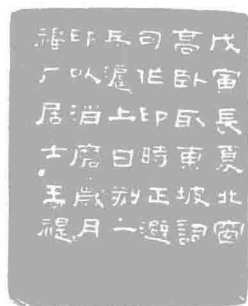 戊寅長夏北窗
高臥取東坡詞
句作印時正避
兵滬上日刻一
印以消磨歲月
福厂居士王禔